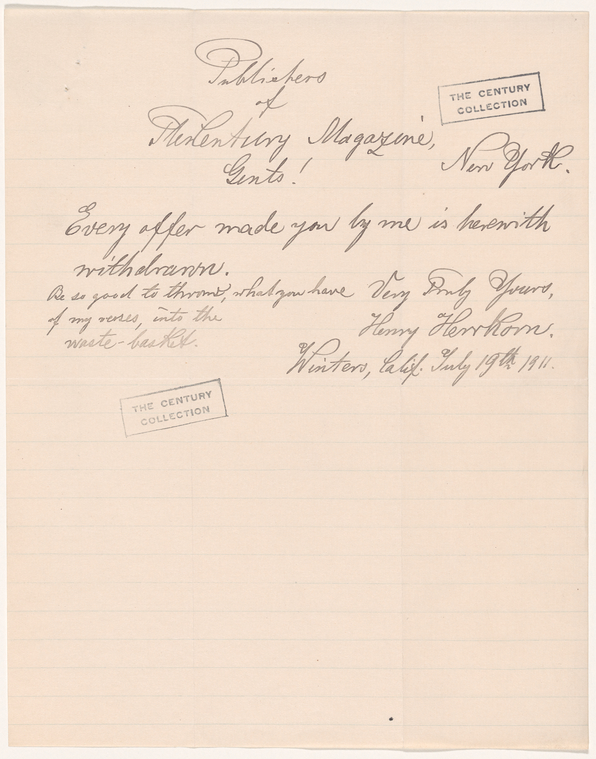 Publishers
of
The Century Magazine,
New York.
Gents!
THE CENTURY
COLLECTION
Every offer made you by me is herewith
withdrawn.
Be so good to throw, what you have
of my verses, into the
waste-basket.
Very Truly Yours,
Henry Herrkorn.
Winters, Calif. July 19th 1911.
THE CENTURY
COLLECTION